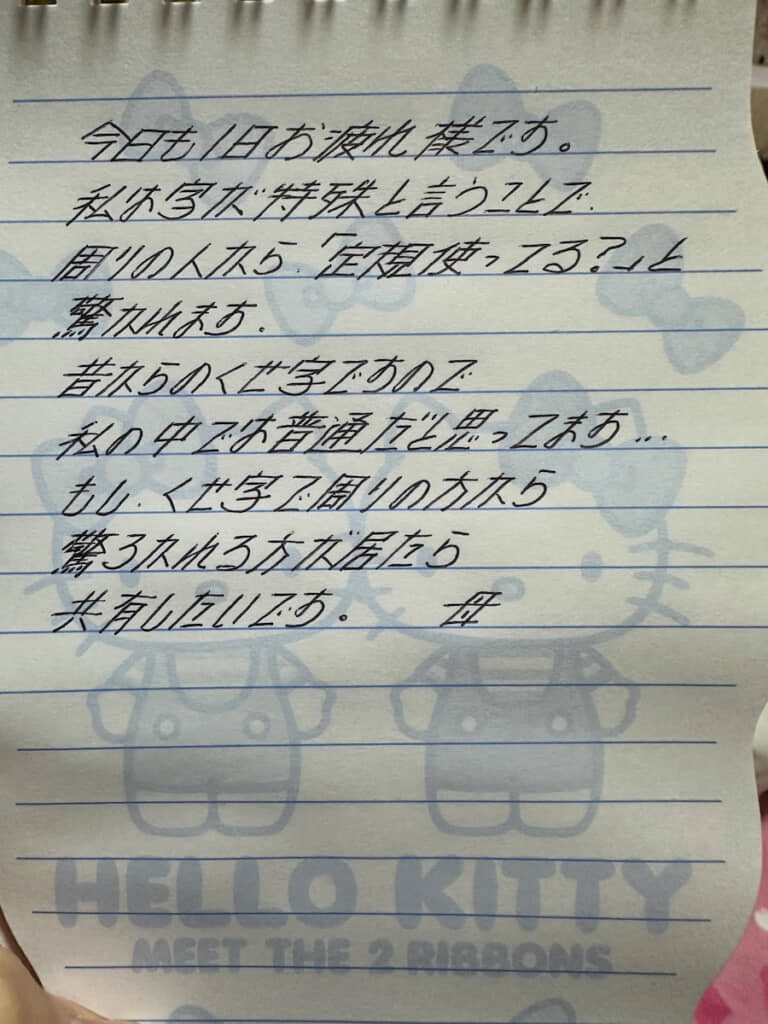 今日も1日お疲れ様です。
私は字が特殊と言うことで、
周りの人から、「定規使ってる?」と
驚かれます。
昔からのくせ字ですので
私の中では普通だと思ってます...
もし、くせ字で周りの方から
驚ろかれる方が居たら
共有したいです。 母
HELLO KITTY
MEET THE 2 RIBBONS